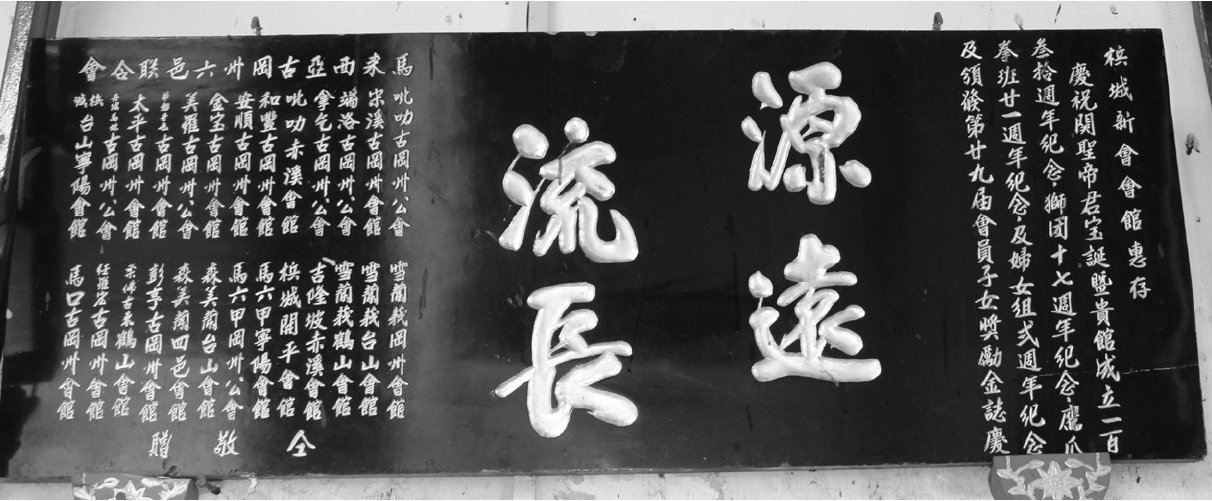 檳城新會會館惠存
慶祝関聖帝君宝誕暨貴館成立一百
叁拾週年紀念獅团十七週年紀念鷹爪
拳班廿一週年紀念及婦女組弍週年紀念
及頒發第廿九届會員子女獎勵金誌慶
源遠
流長
馬來西亞古岡州六邑联合會
吡叻古岡州公會
宋溪古岡州會館
端洛古岡州公會
拿乞古岡州公會
吡叻赤溪會館
和豐古岡州會館
安順古岡州會館
金宝古岡州會館
美羅古岡州公會
古岡州會館
太平古岡州會館
古岡州公會
檳城台山寧陽會館
雪蘭莪岡州會館
雪蘭莪台山會館
雪蘭莪鶴山會館
吉隆坡赤溪會館
檳城開平會館
馬六甲寧陽會館
馬六甲岡州公會
森美蘭台山會館
森美蘭四邑會館
彭亨古岡州會館
柔佛古來鶴山會館
古岡州會館
馬口古岡州會館
仝敬贈